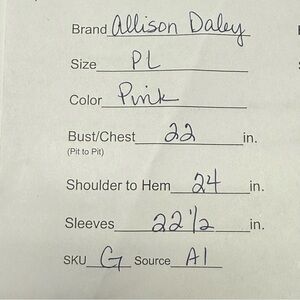 Brand Allison Daley
Size PL
Color Pink
Bust/Chest 22 in.
(Pit to Pit)
Shoulder to Hem 24 in.
Sleeves 22 1/2 in.
SKU G Source A1